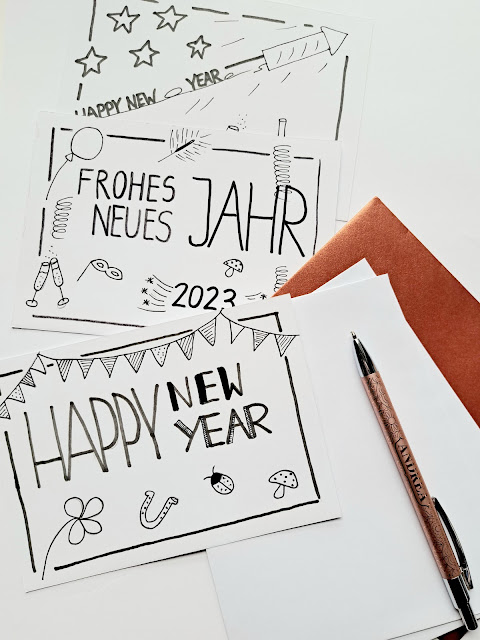 HAPPY NEW YEAR
FROHES
NEUES JAHR
2023
HAPPY NEW
YEAR
ANDREA